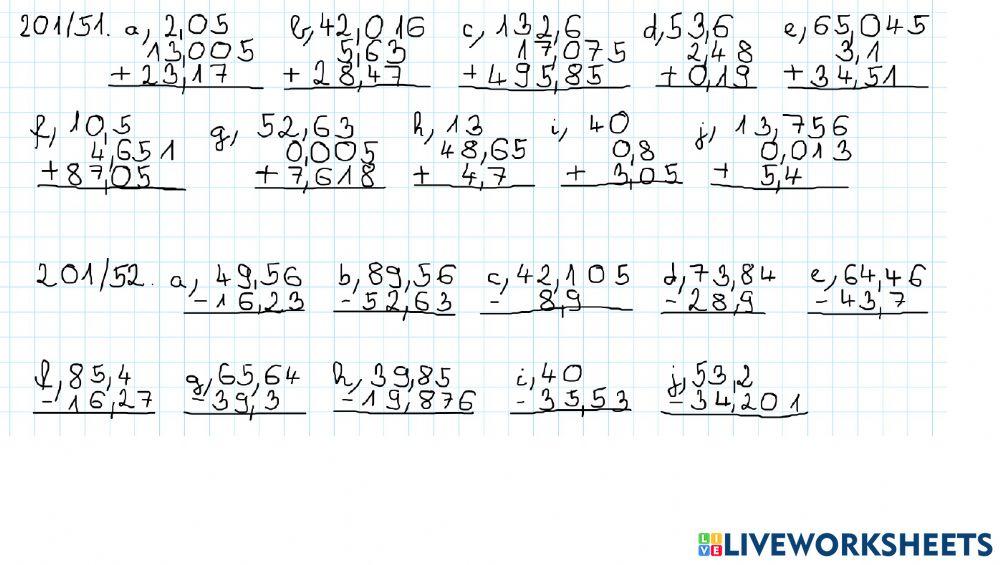 201/51. a, 2,05 b, 42,016 c, 132,6 d, 53,6 e, 65,045
13,005 5,63 17,075 2,48 3,1
+ 23,17 + 28,47 + 495,85 + 0,19 + 34,51
f, 10,5 g, 52,63 h, 13 i, 40 j, 13,756
4,651 0,005 48,65 0,8 0,013
+ 87,05 + 7,618 + 4,7 + 3,05 + 5,4
201/52. a, 49,56 b, 89,56 c, 42,105 d, 73,84 e, 64,46
- 16,23 - 52,63 - 8,9 - 28,9 - 43,7
f, 85,4 g, 65,64 h, 39,85 i, 40 j, 53,2
- 16,27 - 39,3 - 19,876 - 35,53 - 34,201
LIVE LIVEWORKSHEETS